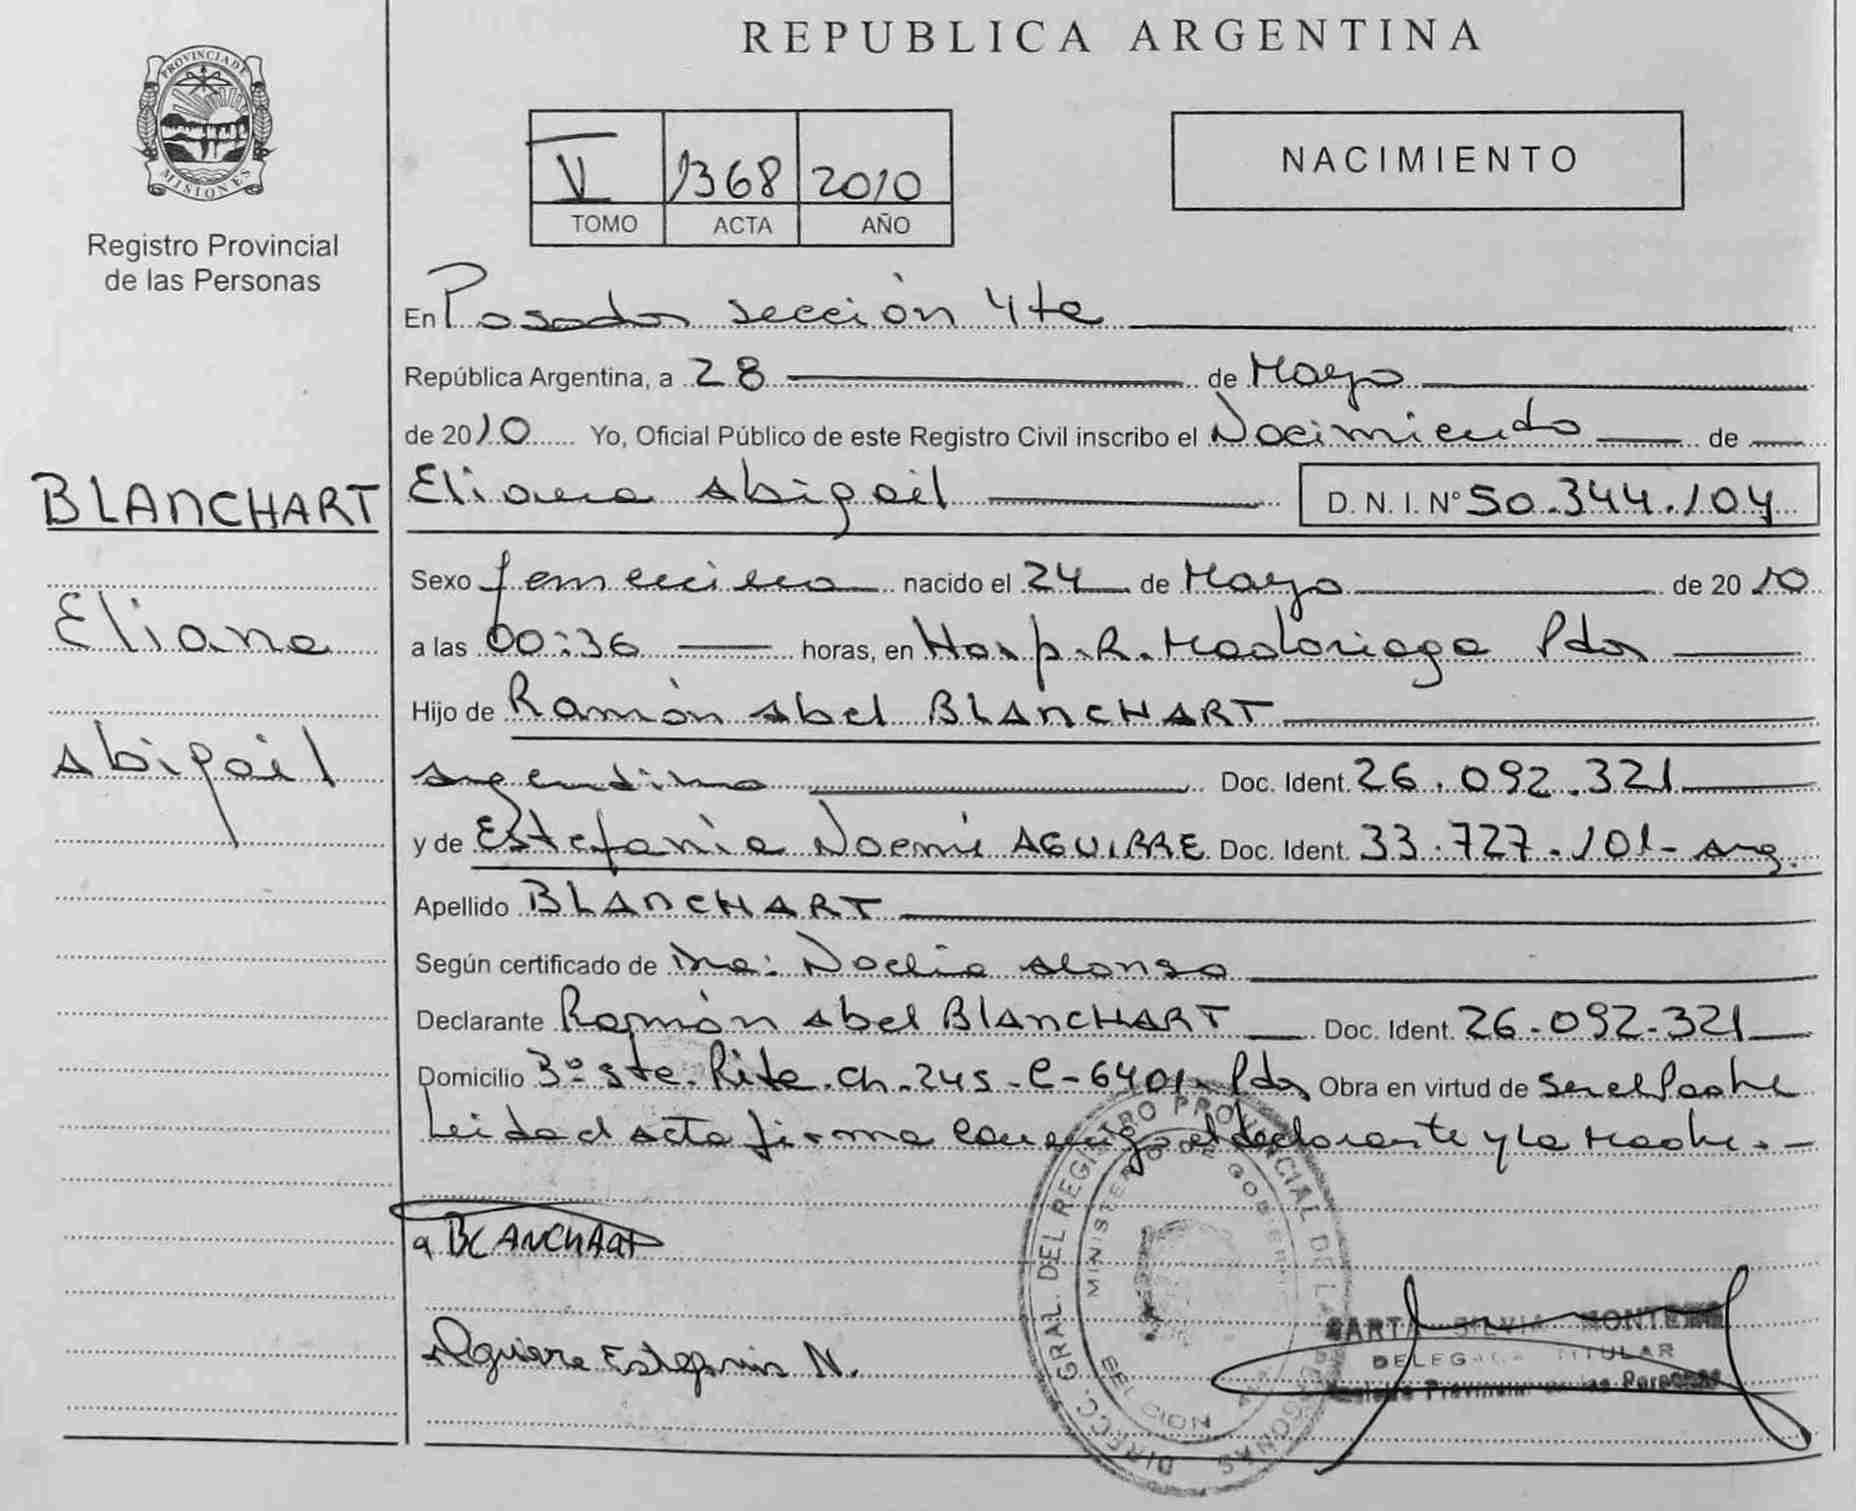 REPUBLICA ARGENTINA
PROVINCIA DE
MISIONES
Registro Provincial
de las Personas
V 1368 2010
TOMO ACTA AÑO
NACIMIENTO
En Posadas sección 4ta
República Argentina, a 28 de Mayo
de 2010 Yo, Oficial Público de este Registro Civil inscribo el Nacimiento de
BLANCHART
Eliana
Abigail
Eliana Abigail D. N. I. Nº 50.344.104
Sexo femenino nacido el 24 de Mayo de 2010
a las 00:36 horas, en Hosp. R. Madariaga Pdas
Hijo de Ramón Abel BLANCHART
argentino Doc. Ident. 26.092.321
y de Estefanía Noemí AGUIRRE Doc. Ident. 33.727.101- arg.
Apellido BLANCHART
Según certificado de Dra: Noelia Alonso
Declarante Ramón Abel BLANCHART Doc. Ident. 26.092.321
Domicilio Bº Sta. Rita. Ch. 245 - C - 6401 - Pdas Obra en virtud de ser el Padre
Leida el acta firma conmigo el declarante y la Madre. -
a BLANCHART
Aguirre Estefania N.
DIRECC. GRAL. DEL REGISTRO PROVINCIAL DE LAS PERSONAS
MINISTERIO DE GOBIERNO
SILVIA
DELEGADA TITULAR
Registro Provincial de las Personas